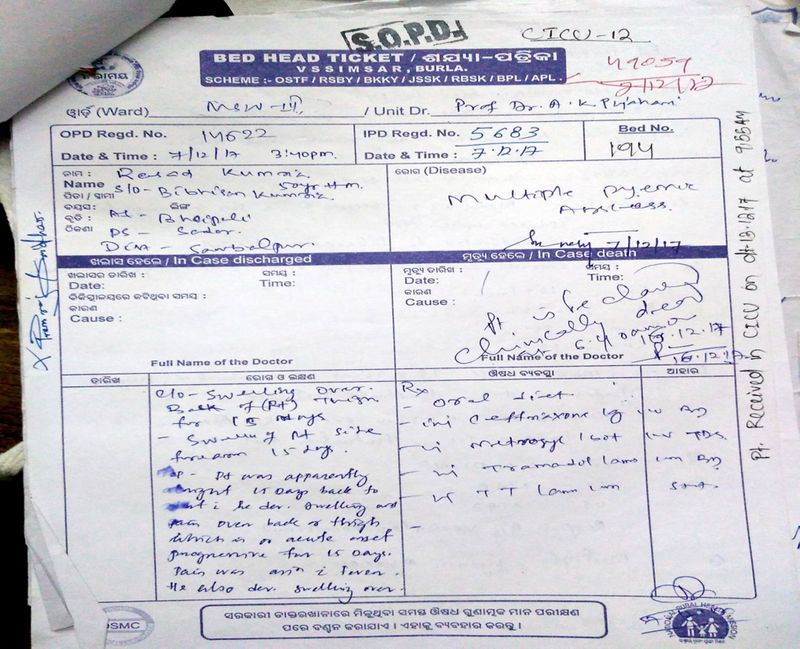 S.O.P.D.
CICU-12
BED HEAD TICKET / ଶଯ୍ୟା-ପତ୍ରିକା
VSSIMSAR, BURLA.
SCHEME :- OSTF / RSBY / BKKY / JSSK / RBSK / BPL / APL .
ୱାର୍ଡ଼ (Ward) / Unit Dr. Prof. Dr. A. K. Pujahari
OPD Regd. No. 14622
IPD Regd. No. : 5683
Bed No.
194
Date & Time : 7/12/17 3:40pm.
Date & Time : 7.12.17
ନାମ :
Name
S/O - Bibhisan Kumar
50yr Hm.
ପିତା / ସ୍ୱାମୀ
ବୟସ: ଲିଙ୍ଗ
ବୃତି : At - Bhoipali
ଠିକଣା PS - Sadar.
Dist - Sambalpur
ରୋଗ (Disease)
Multiple Pyemic
Abscess.
7/12/17
ଖଲାସ ହେଲେ / In Case discharged
ମୃତ୍ୟୁ ହେଲେ / In Case death
ଖଲାସର ତାରିଖ : ସମୟ :
Date: Time:
ଚିକିତ୍ସାଳୟରେ କଟିଥିବା ସମୟ :
କାରଣ
Cause :
Full Name of the Doctor
ମୃତ୍ୟୁ ତାରିଖ : ସମୟ :
Date: Time:
କାରଣ
Cause :
Pt is declared
Clinically dead
6.40am on 16.12.17
Full Name of the Doctor
16.12.17
ତାରିଖ
ରୋଗ ଓ ଲକ୍ଷଣ
ଔଷଧ ବ୍ୟବସ୍ଥା
ଆହାର
C/o - Swelling over.
Back of (Rt) Thigh
for 15 days
- Swelling Rt side
forearm 15 days.
Pt was apparently
15 Days back to
he dev. swelling and
pain over back of thigh
which is of acute onset
progressive for 15 Days.
Pain was fever.
He also dev. swelling over.
Rx
- Oral diet
- inj Ceftriaxone 1g iv BD
- inj Metrogyl 1 bot iv TDS.
- inj Tramadol 1amp im BD
- inj TT 1amp im stat.
Pt. Received in CICU on dt-12.12.17 at 9:55AM
ସରକାରୀ ଡାକ୍ତରଖାନାରେ ମିଳୁଥିବା ସମସ୍ତ ଔଷଧ ଗୁଣାତ୍ମକ ମାନ ପରୀକ୍ଷଣ
ପରେ ବଣ୍ଟନ କରାଯାଏ । ଏହାକୁ ବ୍ୟବହାର କରନ୍ତୁ ।
OSMC